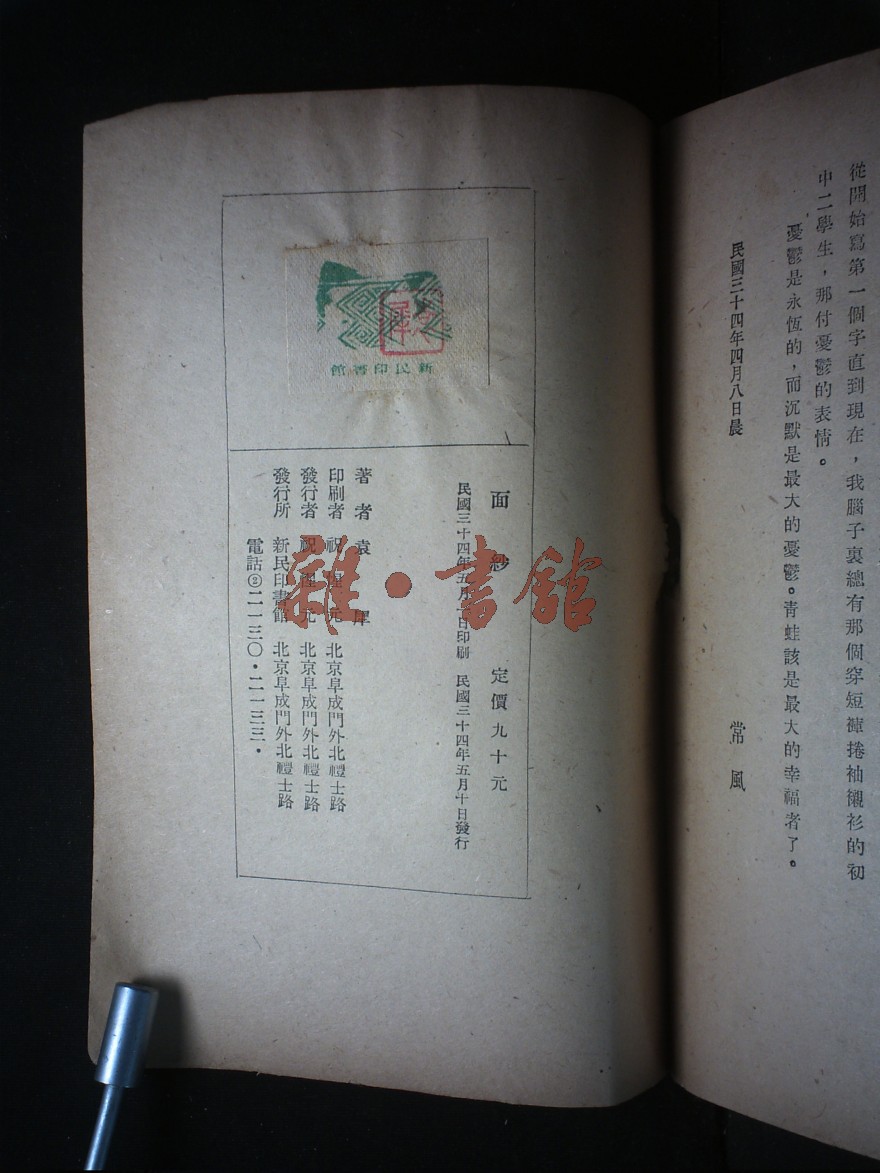 從開始寫第一個字直到現在，我腦子裏總有那個穿短褲捲袖襯衫的初
中二學生，那付憂鬱的表情。
憂鬱是永恆的，而沉默是最大的憂鬱。青蛙該是最大的幸福者了。
民國三十四年四月八日晨　常風
新民印書館
面紗　定價九十元
民國三十四年五月日印刷　民國三十四年五月十日發行
著者　袁犀
印刷者　祝惺元　北京阜成門外北禮士路
發行者　祝惺元　北京阜成門外北禮士路
發行所　新民印書館　北京阜成門外北禮士路
電話②二一一三〇·二一一三三·
雜·書館